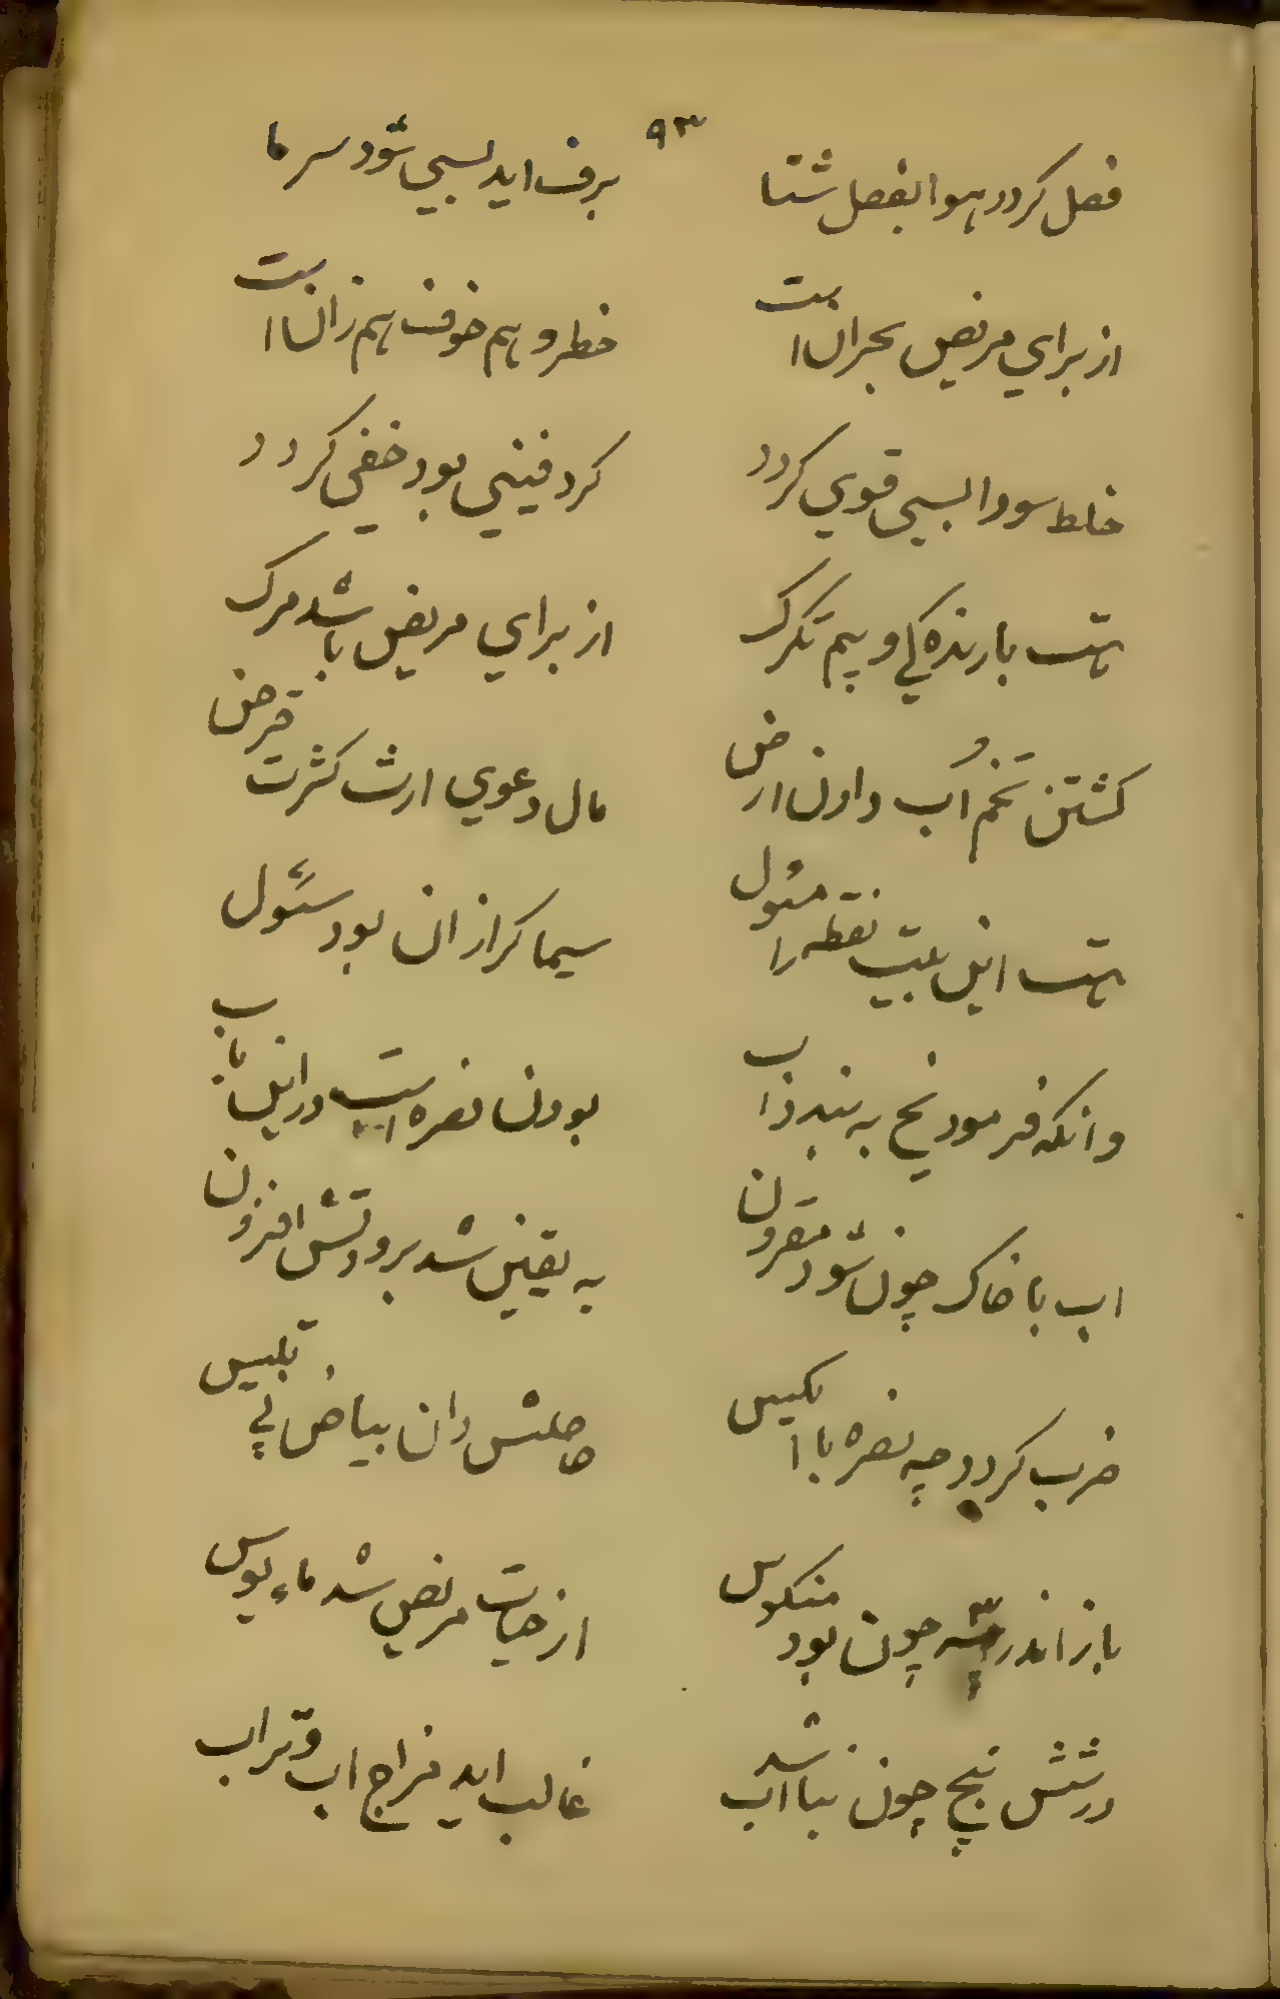 ٩٣
فصل کردد هوا بفصل شتا
برف اید بسی شود سرما
از برای مریض بحران است
خطر و هم خوف هم زان است
خلط سودا بسی قوی کردد
کرد فینی بود خفی کردد
هست بارنده کی و بیم تکرک
از برای مریض باشد مرک
کشتن تخم و آب دادن ارض
مال دعوی ارث کثرت قرض
هست این بیت نقطه را مسئول
سیما کر از ان بود سئول
وانکه فرمود نح به بند ذاب
بودن نصره است در این باب
اب با خاک چون شود مقرون
به یقین شد برودتش افزون
ضرب کردد چه نصره با انکیس
حاصلش دان بیاض بی تلبیس
باز اندر سه چون بود منکوس
از حیات مریض شد ماءیوس
در شش پنج چون نباشد آب
غالب اید مزاج اب و تراب